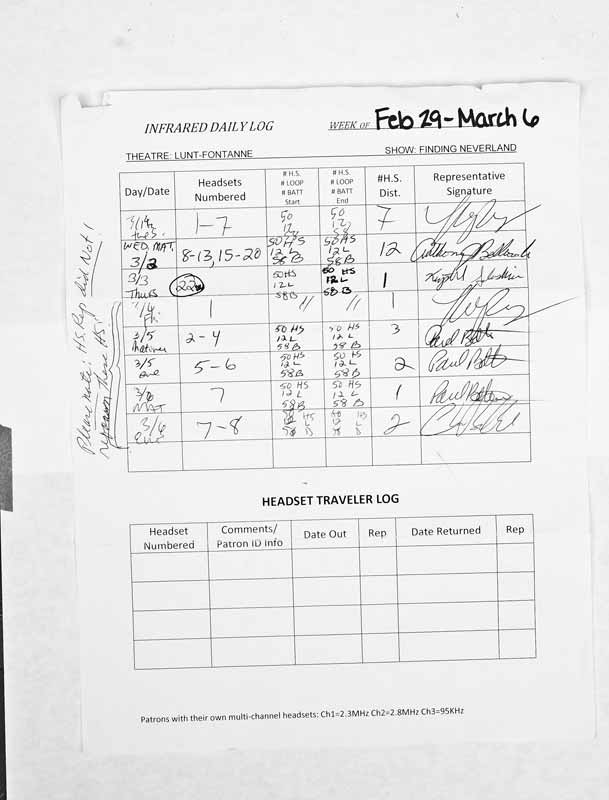 INFRARED DAILY LOG WEEK OF Feb 29 - March 6
THEATRE: LUNT-FONTANNE SHOW: FINDING NEVERLAND
Day/Date Headsets Numbered # H.S. # LOOP # BATT Start # H.S. # LOOP # BATT End #H.S. Dist. Representative Signature
tues. 1-7 50 12 50 12 58 7
WED. MAT. 3/2 8-13, 15-20 50 HS 12 L 58 B 50 HS 12 L 58 B 12 Anthony
3/3 Thurs 22 50 HS 12 L 58 B 50 HS 12 L 58 B 1
Fri 1 // // 1
3/5 Matinee 2-4 50 HS 12 L 58 B 50 HS 12 L 58 B 3 Paul
3/5 eve 5-6 50 HS 12 L 58 B 50 HS 12 L 58 B 2 Paul
3/6 MAT 7 50 HS 12 L 58 B 50 HS 12 L 58 B 1 Paul
3/6 Eve 7-8 HS L B HS L B 2
Please note, HS Rep did Not!
these HS
HEADSET TRAVELER LOG
Headset Numbered Comments/ Patron ID Info Date Out Rep Date Returned Rep
Patrons with their own multi-channel headsets: Ch1=2.3MHz Ch2=2.8MHz Ch3=95KHz